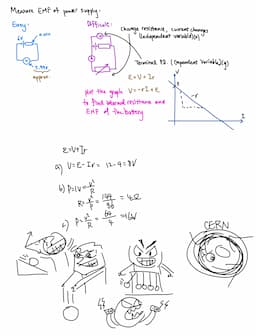 Measure EMF of power supply:
Easy:
Difficult:
Change resistance, current changes
(independent variable)(x)
Terminal P.D. (Dependent Variable)(y)
ε=V+Ir
V=-rI+ε
Plot the graph
to find internal resistance and
EMF of the battery
approx
V
-r
I
ε=V+Ir
a) V=ε-Ir=12-4=8V
b) P=IV=V²/R
R=V²/P=144/36=4Ω
c) P=V²/R=64/4=16W
CERN